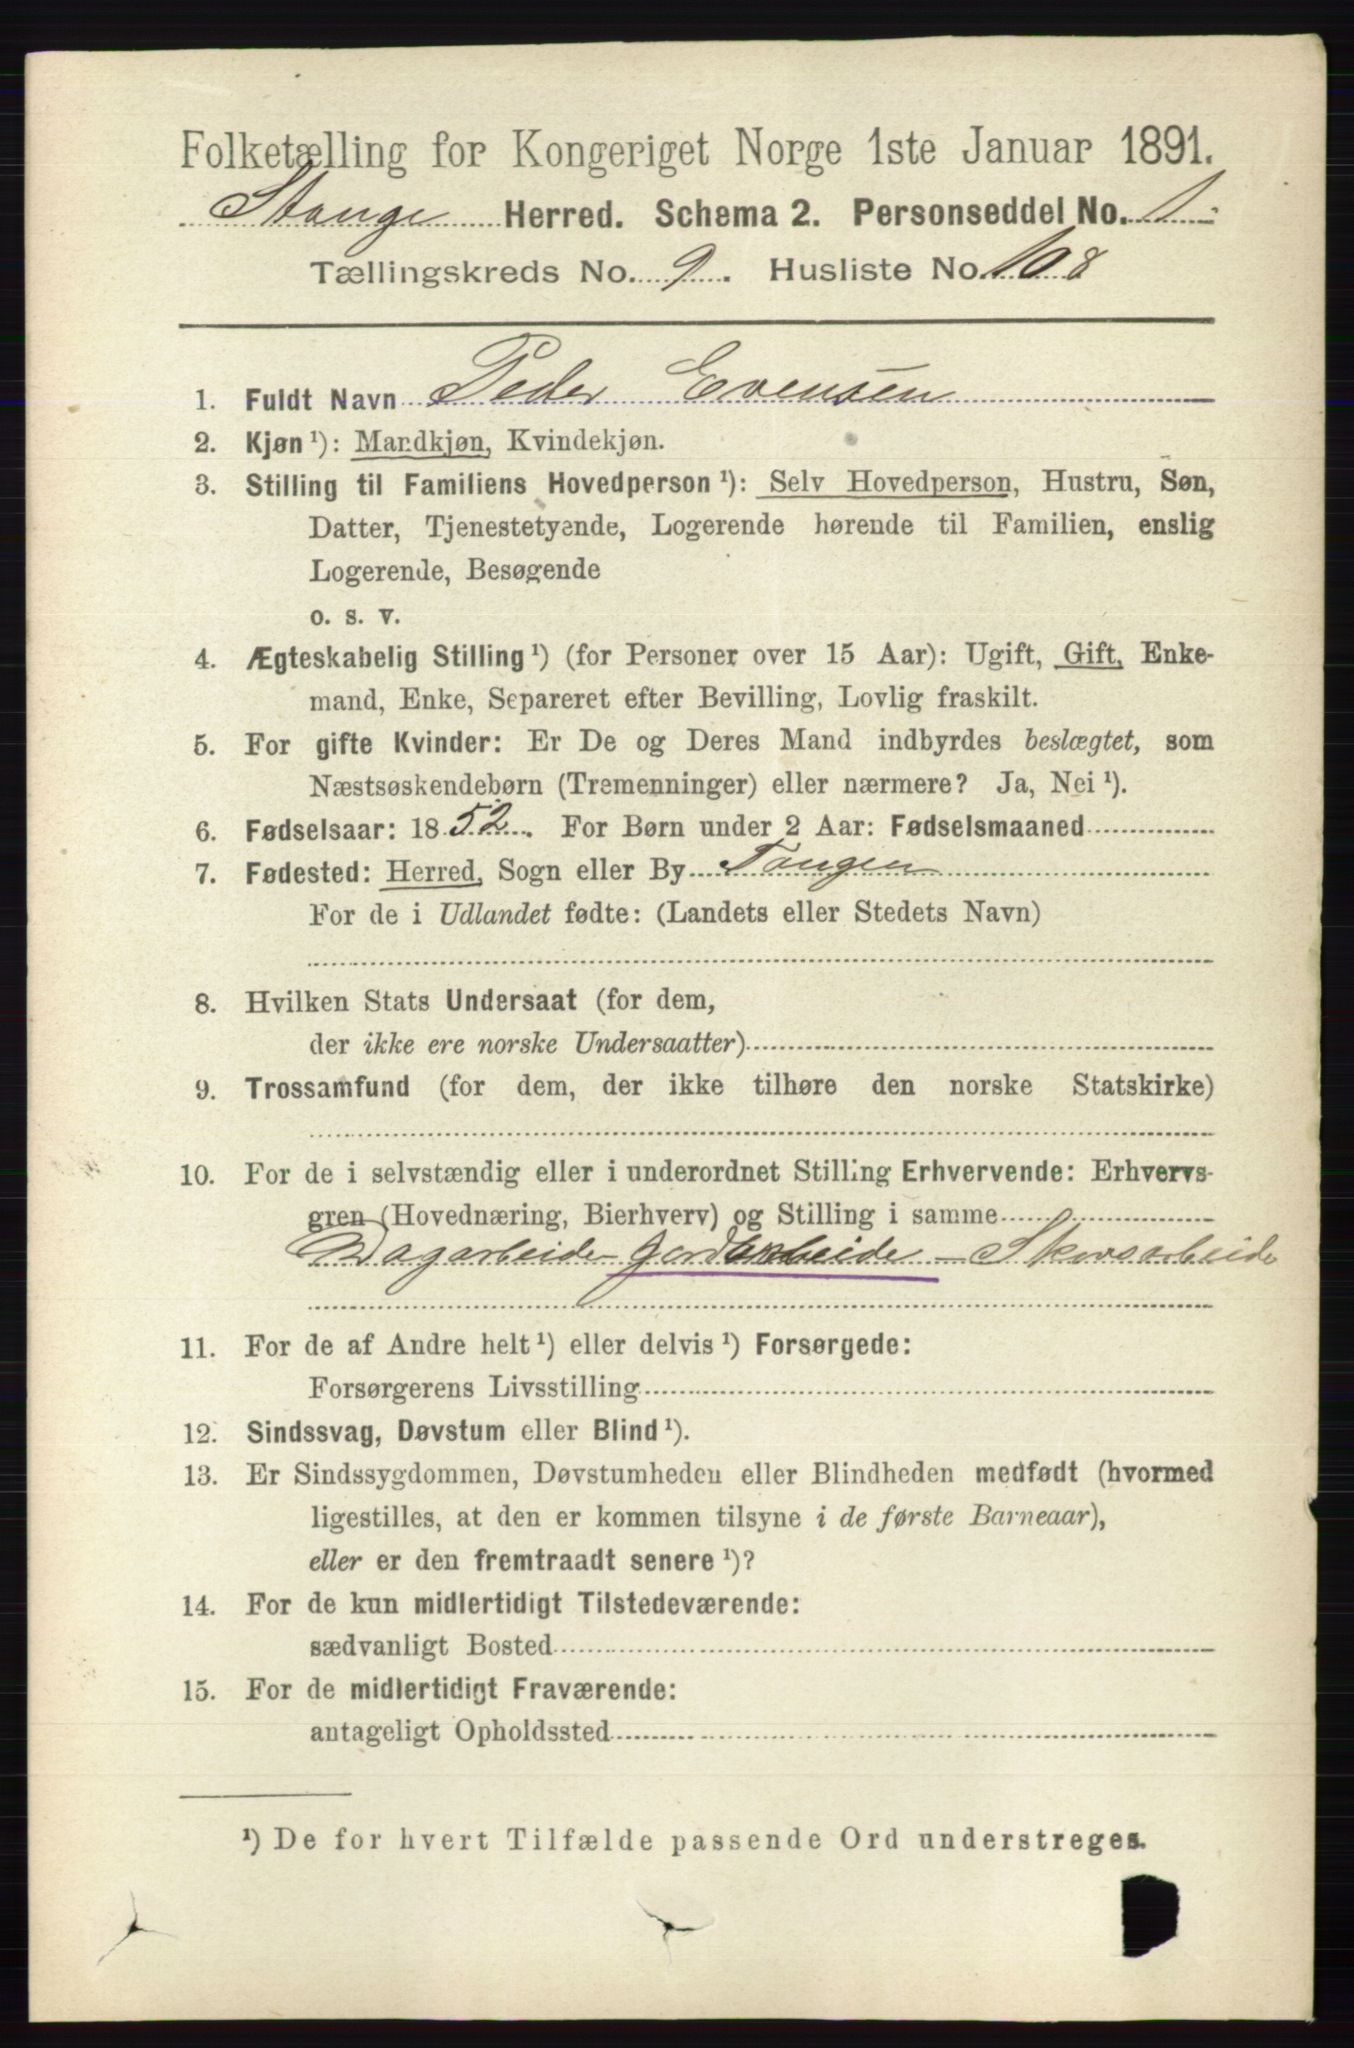 Folketælling for Kongeriget Norge 1ste Januar 1891.
Stange Herred. Schema 2. Personseddel No. 1
Tællingskreds No. 9. Husliste No. 108
1. Fuldt Navn Peder Evensen
2. Kjøn ¹): Mandkjøn, Kvindekjøn.
3. Stilling til Familiens Hovedperson ¹): Selv Hovedperson, Hustru, Søn,
Datter, Tjenestetyende, Logerende hørende til Familien, enslig
Logerende, Besøgende
o. s. v.
4. Ægteskabelig Stilling ¹) (for Personer over 15 Aar): Ugift, Gift, Enke-
mand, Enke, Separeret efter Bevilling, Lovlig fraskilt.
5. For gifte Kvinder: Er De og Deres Mand indbyrdes beslægtet, som
Næstsøskendebørn (Tremenninger) eller nærmere? Ja, Nei ¹).
6. Fødselsaar: 1852. For Børn under 2 Aar: Fødselsmaaned
7. Fødested: Herred, Sogn eller By Tangen
For de i Udlandet fødte: (Landets eller Stedets Navn)
8. Hvilken Stats Undersaat (for dem,
der ikke ere norske Undersaatter)
9. Trossamfund (for dem, der ikke tilhøre den norske Statskirke)
10. For de i selvstændig eller i underordnet Stilling Erhvervende: Erhvervs-
gren (Hovednæring, Bierhverv) og Stilling i samme
Dagarbeide Jordarbeide - Skovsarbeide
11. For de af Andre helt ¹) eller delvis ¹) Forsørgede:
Forsørgerens Livsstilling
12. Sindssvag, Døvstum eller Blind ¹).
13. Er Sindssygdommen, Døvstumheden eller Blindheden medfødt (hvormed
ligestilles, at den er kommen tilsyne i de første Barneaar),
eller er den fremtraadt senere ¹)?
14. For de kun midlertidigt Tilstedeværende:
sædvanligt Bosted
15. For de midlertidigt Fraværende:
antageligt Opholdssted
¹) De for hvert Tilfælde passende Ord understreges.